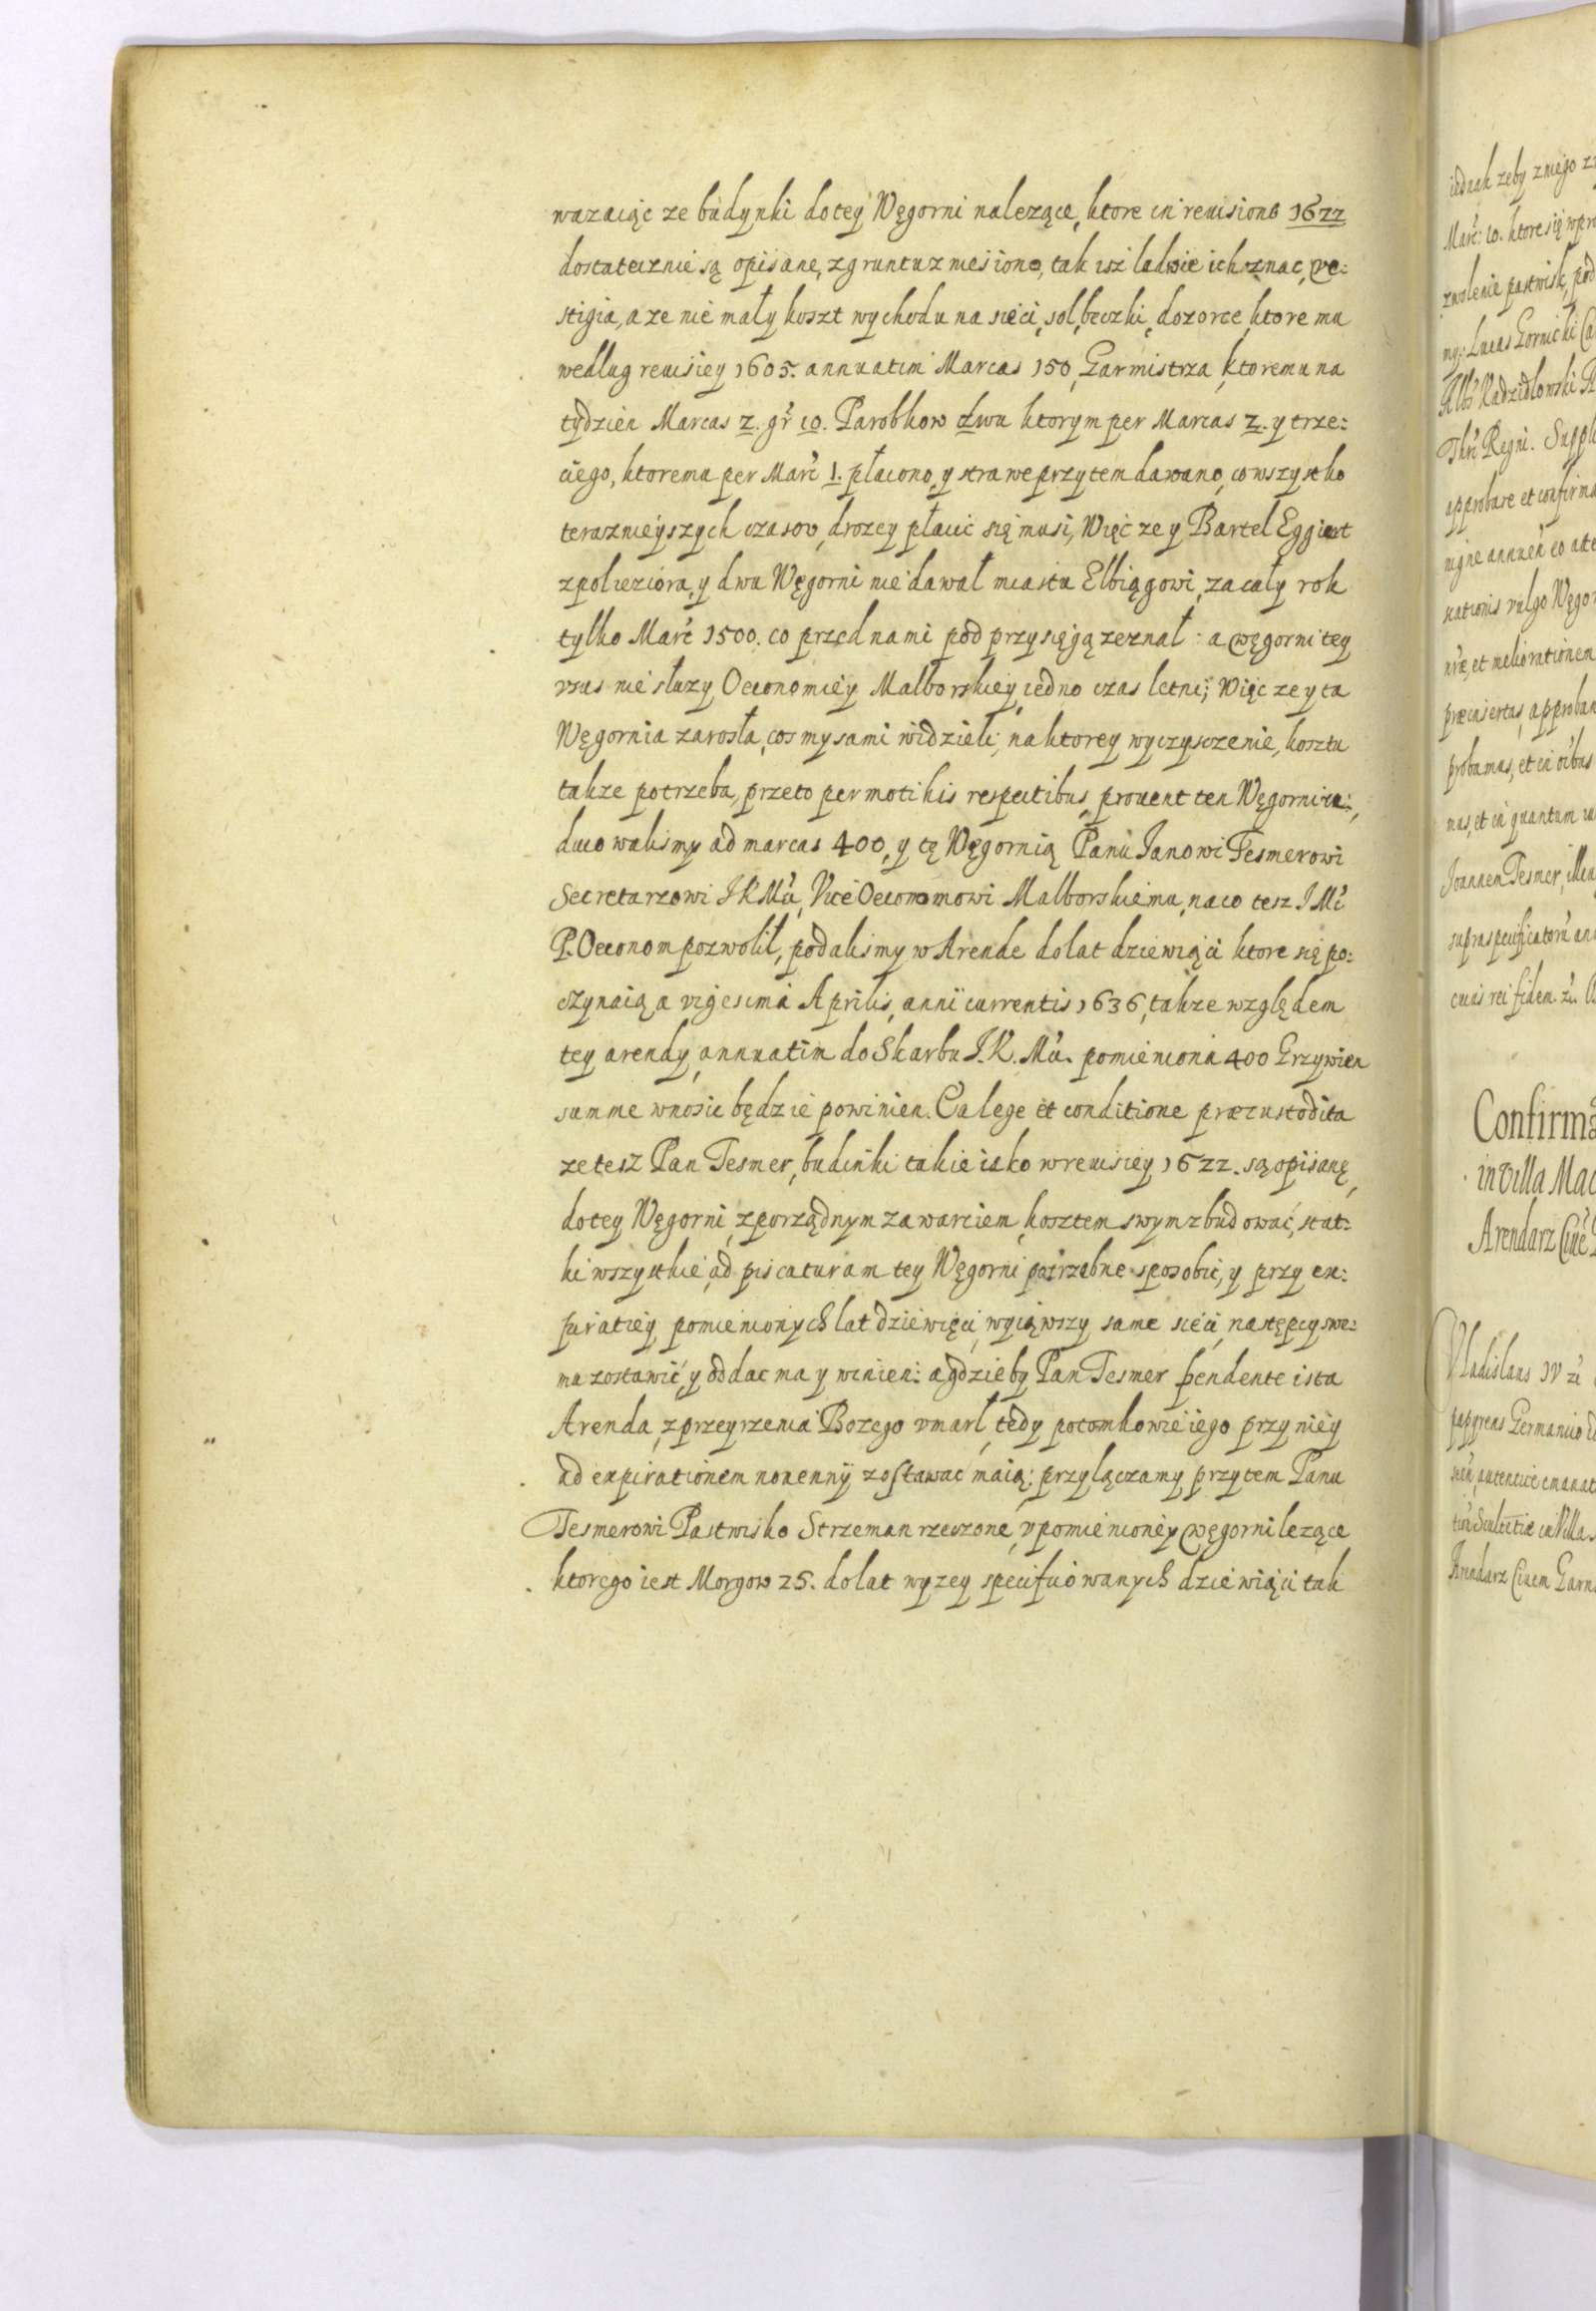 wazaiąc ze budynki do tey Węgorni nalezące, ktore in reuisione 1622
dostatecznie są opisane, z gruntu zniesiono, tak isz ladwie ich znac, ve:
stigia, a ze nie mały koszt wychodu na sieci, sol, beczki, dozorce, ktoremu
wedlug reuisiey 1605. annuatim Marcas 150, Garmistrza, ktoremu na
tydzien Marcas 2. gr 10. Parobkow dwu ktorym per Marcas 2. y trze:
ciego, ktoremu per Marc 1. płacono, y strawe przytem dawano, co wszystko
terasznieyszych czasow, drozey płacic się musi, Więc ze y Bartel Eggiert
z poł ieziora, y dwu Węgorni nie dawał miastu Elbiągowi, za cały rok
tylko Marc 1500. co przed nami pod przysięgą zeznał: a węgorni tey
vzus nie słuzy Oeconomiey Malborskiey, iedno czas letni; Więc ze y ta
Węgornia zarosła, cosmy sami widzieli, na ktorey wyczysczenie, kosztu
takze potrzeba, przeto permoti his respectibus, prouent ten Węgorni re:
ducowalismy ad marcas 400, y tę Węgornią Panu Janowi Tesmerowi
Secretarzowi J K Mci, Vice Oeconomowi Malborskiemu, na co tesz J Mc
P. Oeconom pozwolił, podalismy w Arende do lat dziewiąci ktore się po:
czynaią a vigesima Aprilis, anni currentis 1636, takze względem
tey arendy, annuatim do Skarbu J. K. Mci. pomieniona 400 Grzywien
summe wnosic będzie powinien. Ca lege et conditione præcustodita
ze tesz Pan Tesmer, budinki takie iako w reuisiey 1622. są opisanę
do tey Węgorni, z porządnym zawarciem, kosztem swym zbudować, stat:
ki wszystkie, ad piscaturam tey Węgorni potrzebne sposobic, y przy ex:
piratiey pomienionych lat dziewięci, wyiąwszy same sieci, następcy swe:
mu zostawić, y oddac ma y winien: a gdzieby Pan Tesmer pendente ista
Arenda, z przeyrzenia Bozego vmarł, tedy potomkowie iego przy niey
ad expirationem nouennij zostawac maią: przyłączamy przytem Panu
Tesmerowi Pastwisko Strzeman rzeczone, v pomienioney węgorni lezące
ktorego iest Morgow 25. do lat wyzey specificowanych dziewiąci tak
iednak zeby z niego
Marc: 10. ktore się
zwolenie pastwisk, pod
Lucas Gornicki
Radzidlowski
Regni.
approbare et
uulgo
et meliorationem
præinsertas,
probamus, et in
et in quantum
Joannem Tesmer,
cuius rei fidem
Confirma
in Villa
Arendarz
Vladislaus IV
papyreas Germanico
Arendarz Ciuem